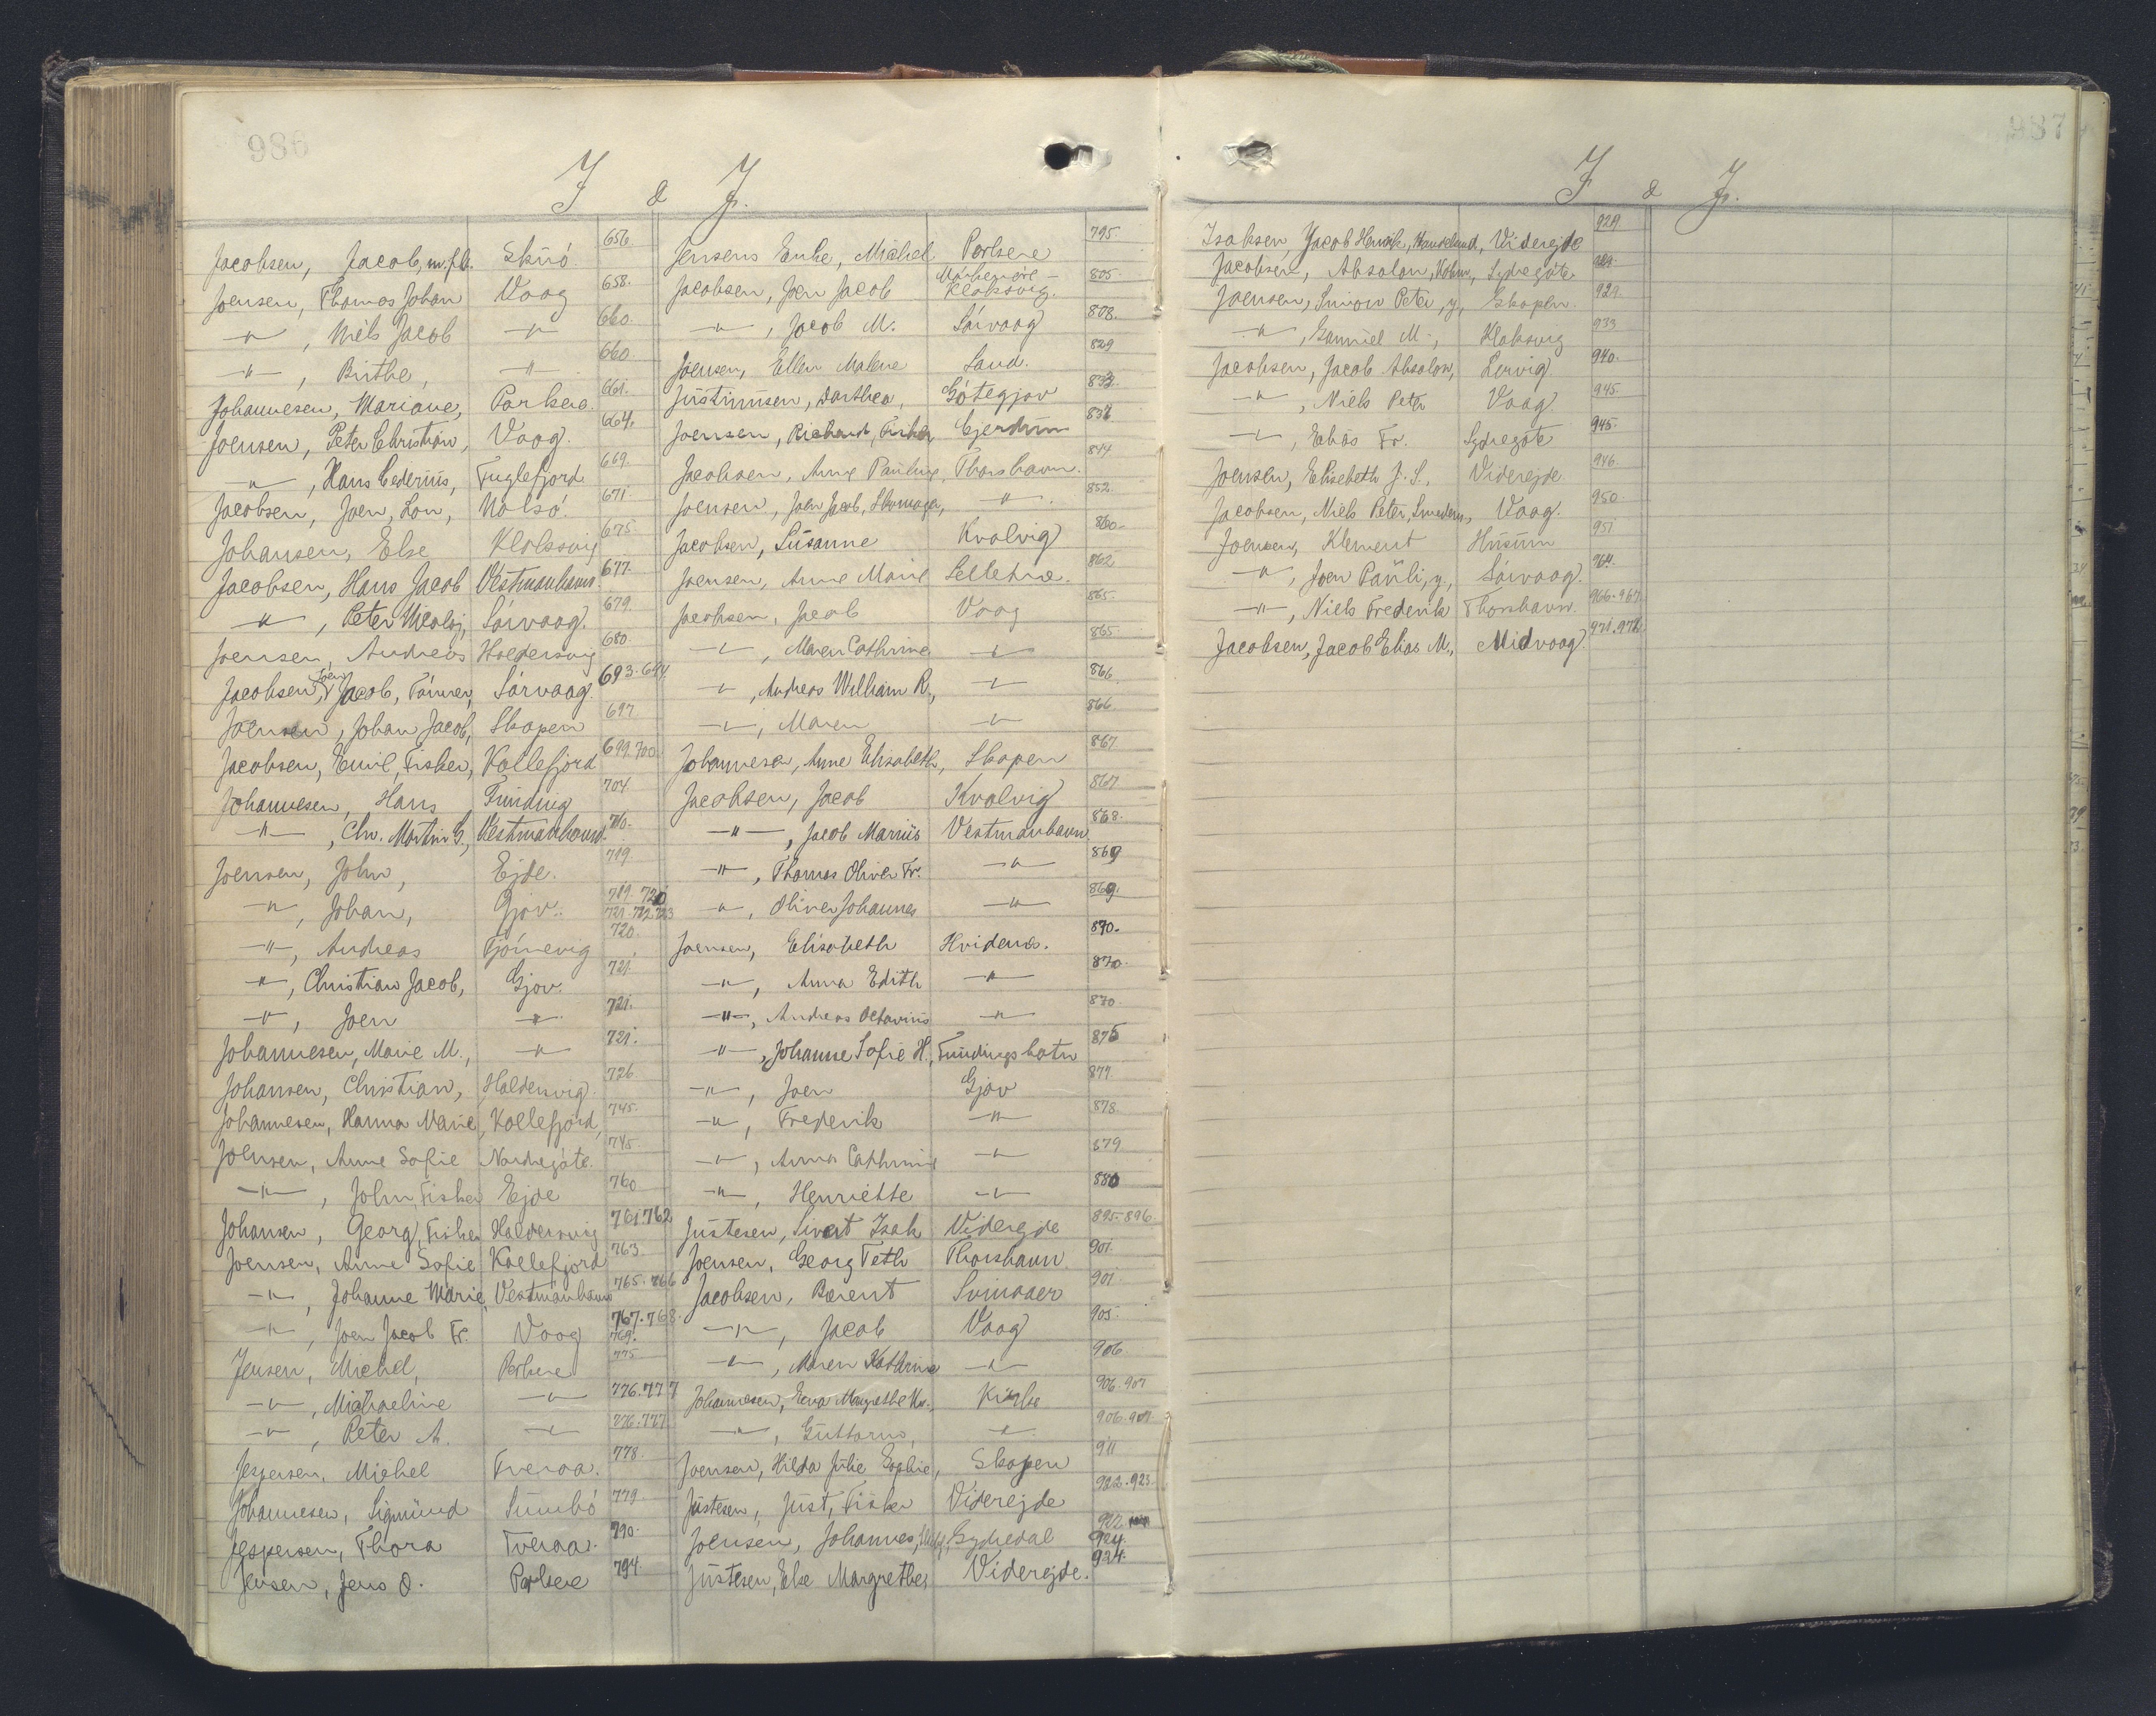 986
I & J.
Jacobsen, Jacob, m.fl. Skuö 656.
Joensen, Thomas Johan Vaag 658.
—"—, Niels Jacob —"— 660.
—"—, Birthe, —"— 660.
Johannesen, Mariane, Porkere. 661.
Joensen, Peter Christian, Vaag. 664.
—"—, Hans Cederius, Fuglefjord 669.
Jacobsen, Joen, Lon, Nolsö. 671.
Johansen, Else Klaksvig 675.
Jacobsen, Hans Jacob Vestmanhavn. 677.
—"—, Peter Nicolaj, Sörvaag. 679.
Joensen, Andreas Haldersvig 680.
Jacobsen, Joen Jacob, Tömrer, Sörvaag. 693-694
Joensen, Johan Jacob, Skopen 697
Jacobsen, Emil, Fisker, Kollefjord 699.700.
Johannesen, Hans Funding 704.
—"—, Chr. Martin G., Vestmanhavn. 710.
Joensen, John, Ejde. 719.
—"—, Johan, Gjov. 719. 720 721. 722. 723
—"—, Andreas Tjörnevig 720.
—"—, Christian Jacob, Gjov. 721.
—"—, Joen —"— 721.
Johannesen, Marie M., —"— 721.
Johansen, Christian, Haldersvig. 726.
Johannesen, Hanna Marie, Kollefjord, 745.
Joensen, Anne Sofie Nordregöte. 745.
—"—, John, Fisker Ejde 760
Johansen, Georg, Fisker Haldersvig 761.762
Joensen, Anne Sofie Kollefjord 763.
—"—, Johanne Marie, Vestmanhavn 765. 766
—"—, Joen Jacob Fr. Vaag 767.768. 769.
Jensen, Michel, Porkere 775
—"—, Michaeline —"— 776.777
—"—, Peter A. —"— 776.777.
Jespersen, Michel Tveraa. 778.
Johannesen, Sigmund Sumbö 779.
Jespersen, Thora Tveraa. 790.
Jensen, Jens O. Porkere 794.
Jensens Enke, Michel Porkere 795.
Jacobsen, Joen Jacob Klaksvig. 805.
—"—, Jacob M. Sörvaag 808.
Joensen, Ellen Malene Sand. 829
Justinusen, Dorthea, Götegjov 833.
Joensen, Richard, Fisker, Gjerdum 836
Jacobsen, Anne Pauline, Thorshavn. 844
Joensen, Joen Jacob, Skomager, —"—. 852.
Jacobsen, Susanne Kvalvig 860.
Joensen, Anne Marie Selletræ. 862
Jacobsen, Jacob Vaag 865.
—"—, Maren Cathrine —"— 865.
—"—, Andreas William R., —"— 866.
—"—, Maren —"— 866.
Johannesen, Anne Elisabeth, Skopen 867
Jacobsen, Jacob Kvalvig 867
—"—, Jacob Marius Vestmanhavn. 868.
—"—, Thomas Oliver Fr. —"— 869
—"—, Oliver Johannes —"— 869.
Joensen, Elisabeth Hvidenæs. 870.
—"—, Anna Edith —"— 870.
—"—, Andreas Octavius —"— 870.
—"—, Johanne Sofie H., Fundingsbotn 875
—"—, Joen Gjov 877.
—"—, Frederik —"— 878.
—"—, Anna Cathrine —"— 879
—"—, Henriette —"— 880
Justesen, Sivert Isak Viderejde 895-896.
Joensen, Georg Feth Thorshavn. 901.
Jacobsen, Berent Svinaaer 901.
—"—, Jacob Vaag 905.
—"—, Maren Kathrine —"— 906
Johannesen, Eeva Margrethe Kr., Kirke 906.907
—"—, Guttorm, —"— 906.907.
Joensen, Hilda Julie Sophie, Skopen 911
Justesen, Just, Fisker Viderejde 922.923.
Joensen, Johannes, Sydredal 922 924.
Justesen, Else Margrethe, Viderejde. 924.
987
I & J.
Isaksen, Jacob Henrik, Handelsmd., Viderejde 929.
Jacobsen, Absalon, Købm., Sydregöte
Joensen, Simon Peter, y., Skopen. 929.
—"—, Samuel M., Klaksvig 933
Jacobsen, Jacob Absalon, Lervig 940.
—"—, Niels Peter Vaag. 945.
—"—, Elias Fr. Sydregöte 945.
Joensen, Elisebeth J. S., Viderejde 946
Jacobsen, Niels Peter, Vaag. 950.
Joensen, Klement Husum 951
—"—, Joen Pauli, y., Sörvaag. 964.
—"—, Niels Frederik Thorshavn. 966-967.
Jacobsen, Jacob Elias M., Midvaag.